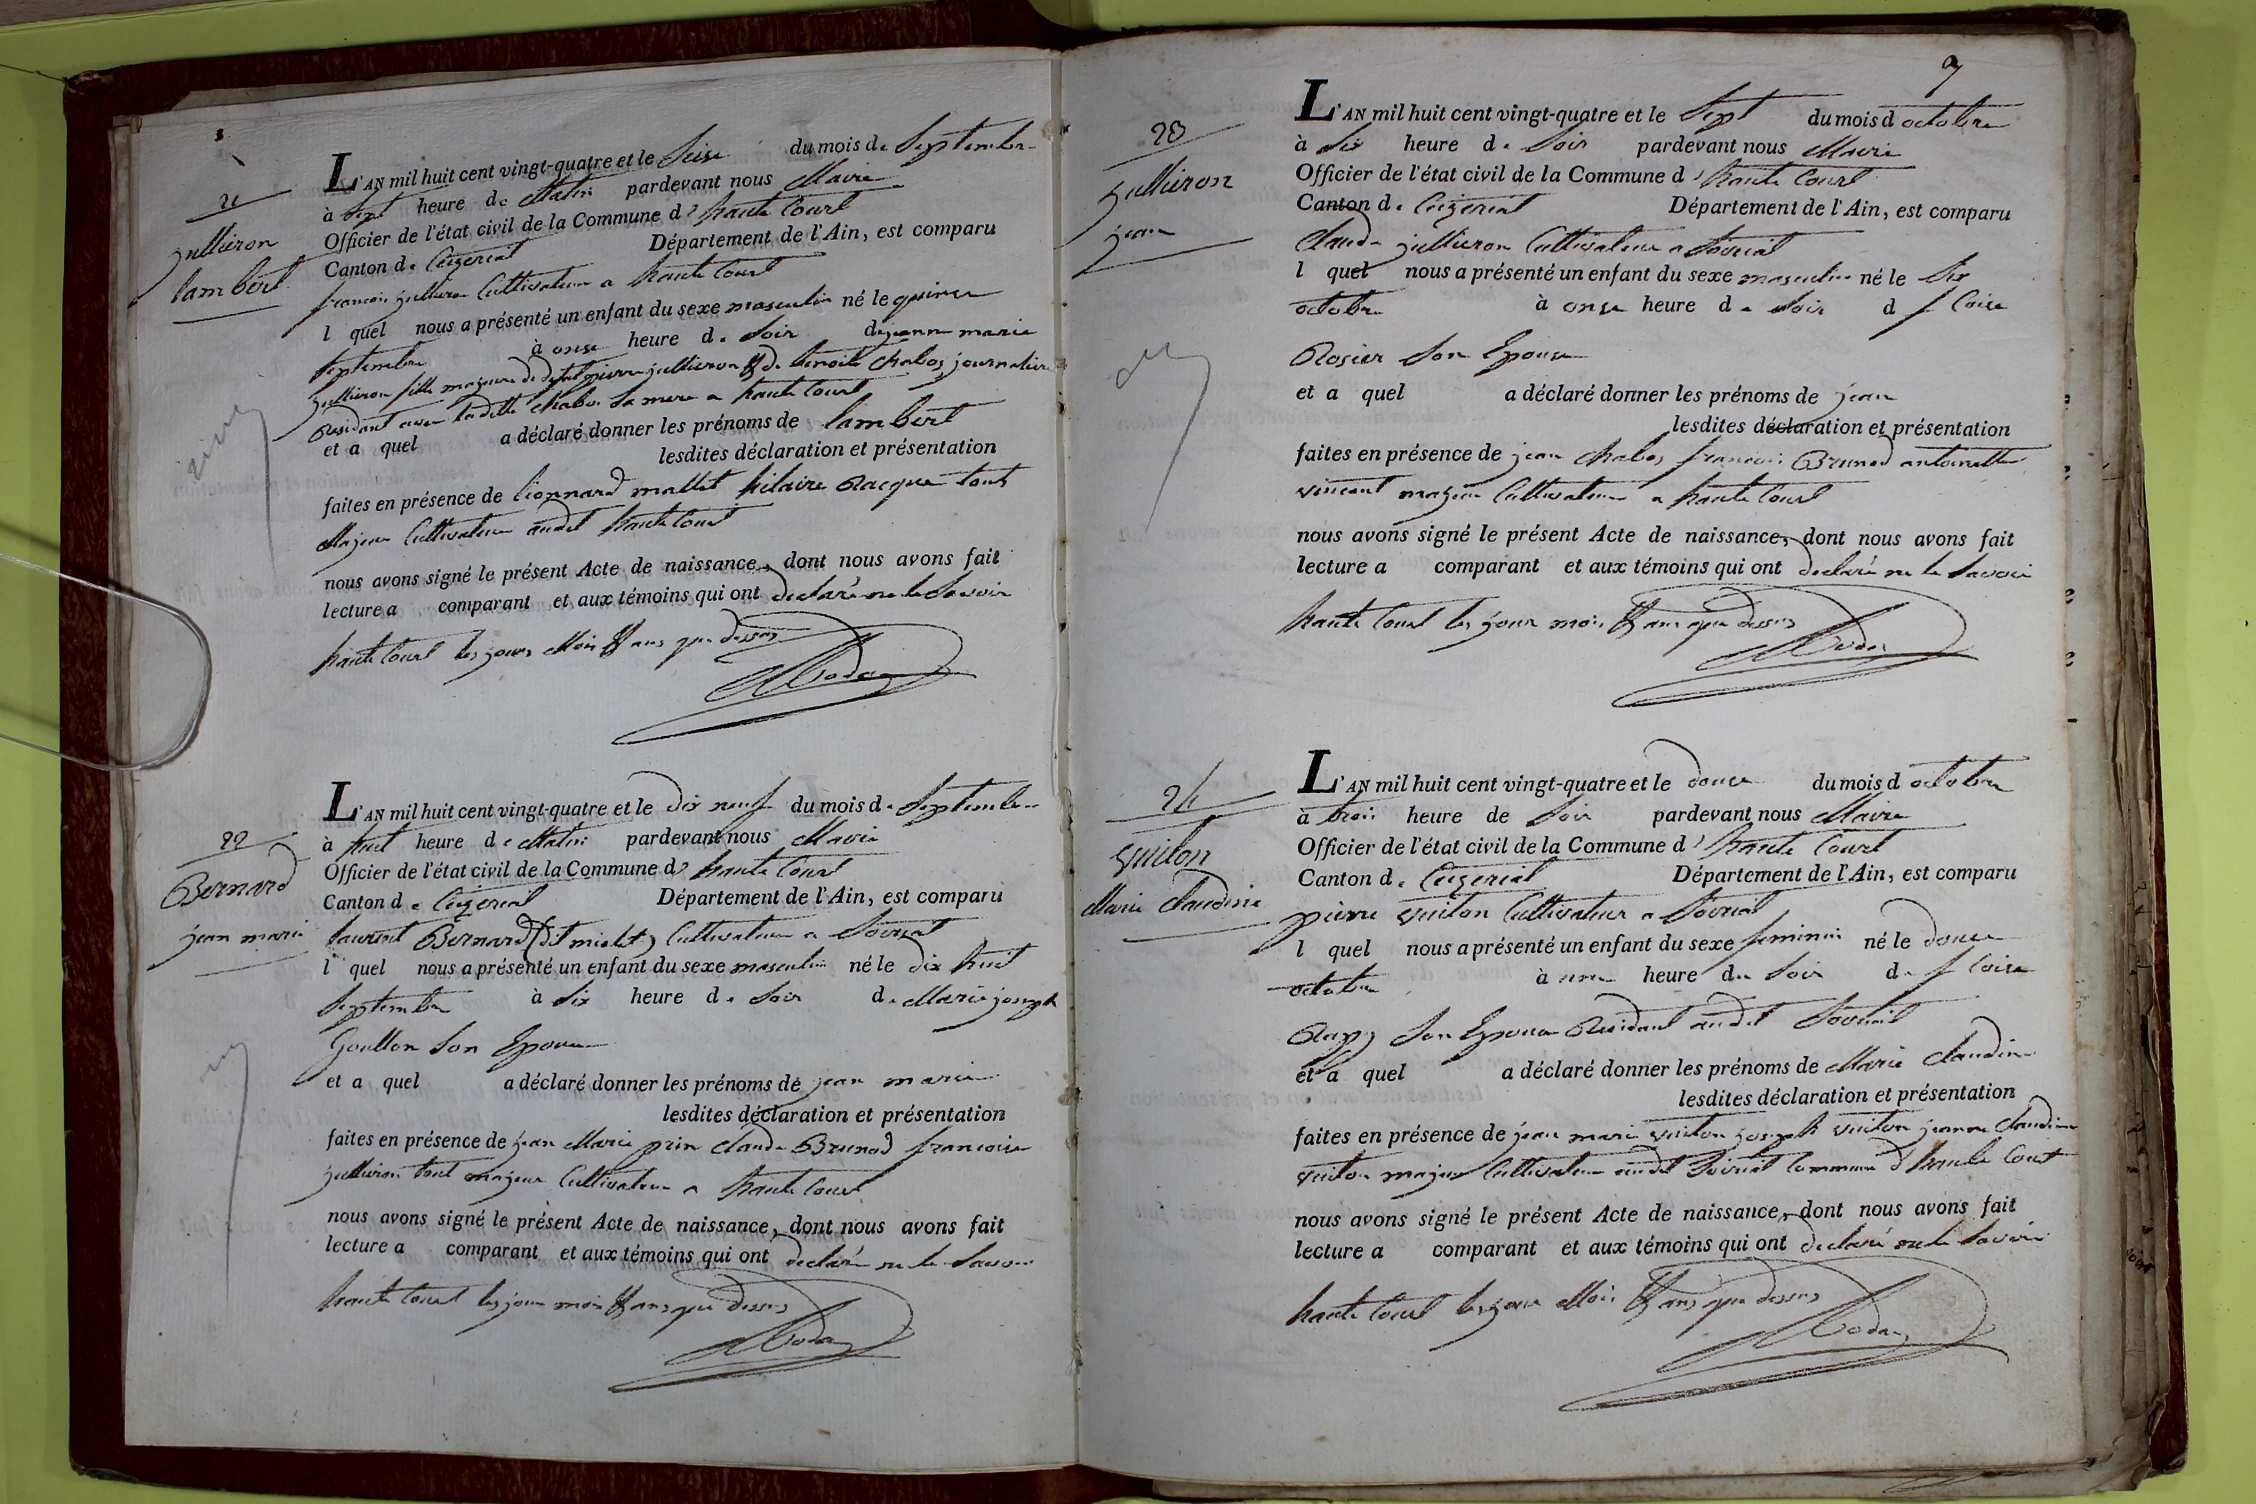 21
jullieron
lambert
L'AN mil huit cent vingt-quatre et le Seise du mois de Septembre
à Sept heure de Matin pardevant nous Maire
Officier de l'état civil de la Commune d' haute Court
Canton de Ceizeriat Département de l'Ain, est comparu
francois jullieron Cultivateur a haute Court
l quel nous a présenté un enfant du sexe masculin né le quinse
Septembre à onse heure de Soir de jeanne marie
jullieron fille majeure de defunt pierre jullieron & de benoite Chabos journaliere
Residant avec laditte Chabos Sa mere a haute Court
et a quel a déclaré donner les prénoms de lambert
lesdites déclaration et présentation
faites en présence de lionnard mallet hilaire Racque touts
Majeur Cultivateur audit haute Court
nous avons signé le présent Acte de naissance, dont nous avons fait
lecture a comparant et aux témoins qui ont declaré ne le Savoir
haute Court les jours Mois & ans que dessus
22
Bernard
jean marie
L'AN mil huit cent vingt-quatre et le dix neuf du mois de Septembre
à huit heure de Matin pardevant nous Maire
Officier de l'état civil de la Commune d' haute Court
Canton de Ceizeriat Département de l'Ain, est comparu
laurent Bernard (dit miolet) Cultivateur a Soiriat
l quel nous a présenté un enfant du sexe masculin né le dix huit
Septembre à Six heure de Soir de Marie joseph
Goullon Son Epouse
et a quel a déclaré donner les prénoms de jean marie
lesdites déclaration et présentation
faites en présence de jean Marie prin Claude Brunod francoise
jullieron tout majeur Cultivateur a haute Court
nous avons signé le présent Acte de naissance, dont nous avons fait
lecture a comparant et aux témoins qui ont declaré ne le Savoir
haute Court les jour mois & ans que dessus
7
23
jullieron
jean
L'AN mil huit cent vingt-quatre et le Sept du mois d octobre
à Six heure de Soir pardevant nous Maire
Officier de l'état civil de la Commune d' haute Court
Canton de Ceizeriat Département de l'Ain, est comparu
Claude jullieron Cultivateur a Soiriat
l quel nous a présenté un enfant du sexe masculin né le Six
octobre à onse heure de Soir d f loise
Rosier Son Epouse
et a quel a déclaré donner les prénoms de jean
lesdites déclaration et présentation
faites en présence de jean Chabos francois Brunod antoinette
vincent majeur Cultivateur a haute Court
nous avons signé le présent Acte de naissance, dont nous avons fait
lecture a comparant et aux témoins qui ont declaré ne le Savoir
haute Court les jour mois & ans que dessus
24
vuiton
Marie Claudine
L'AN mil huit cent vingt-quatre et le douse du mois d octobre
à trois heure de Soir pardevant nous Maire
Officier de l'état civil de la Commune d' haute Court
Canton de Ceizeriat Département de l'Ain, est comparu
pierre vuiton Cultivateur a Soiriat
l quel nous a présenté un enfant du sexe feminin né le douse
octobre à une heure du Soir de f loise
Rapy Son Epouse Residant audit Soiriat
et a quel a déclaré donner les prénoms de Marie Claudine
lesdites déclaration et présentation
faites en présence de jean marie vuiton joseph vuiton jeanne Claudine
vuiton majeur Cultivateur audit Soiriat Commune d haute Court
nous avons signé le présent Acte de naissance, dont nous avons fait
lecture a comparant et aux témoins qui ont declaré ne le Savoir
haute Court les jour Mois & ans que dessus